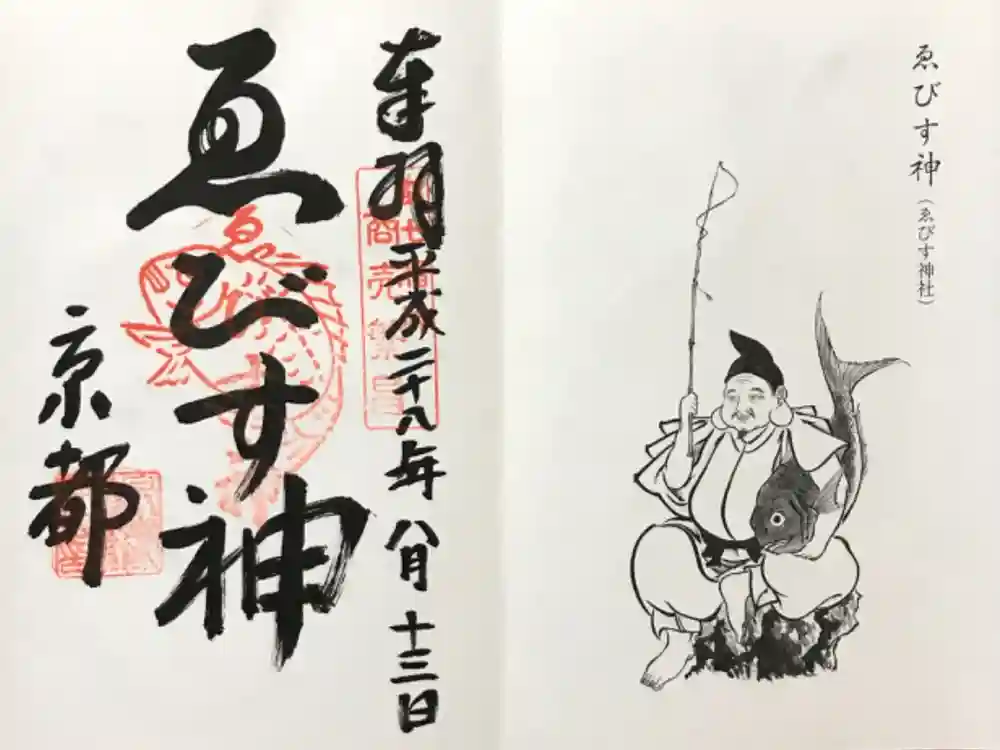 ゑびす神
(ゑびす神社)
奉拝
平成二十八年八月十三日
ゑびす神
京都